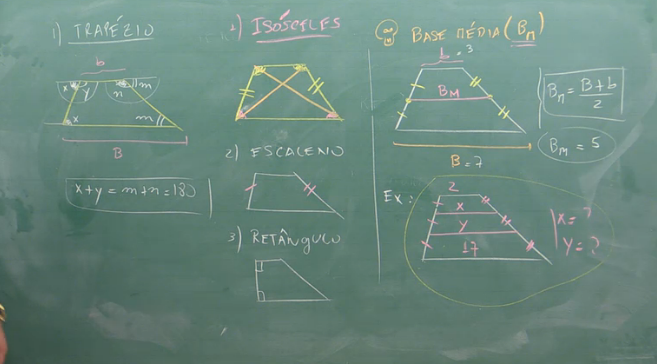 1) TRAPÉZIO
b
x y n m
x m
B
x+y = m+n = 180
1) ISÓSCELES
2) ESCALENO
3) RETÂNGULO
BASE MÉDIA (BM)
b = 3
BM
B = 7
BM = B+b / 2
BM = 5
Ex:
2
x
y
17
x = ?
y = ?